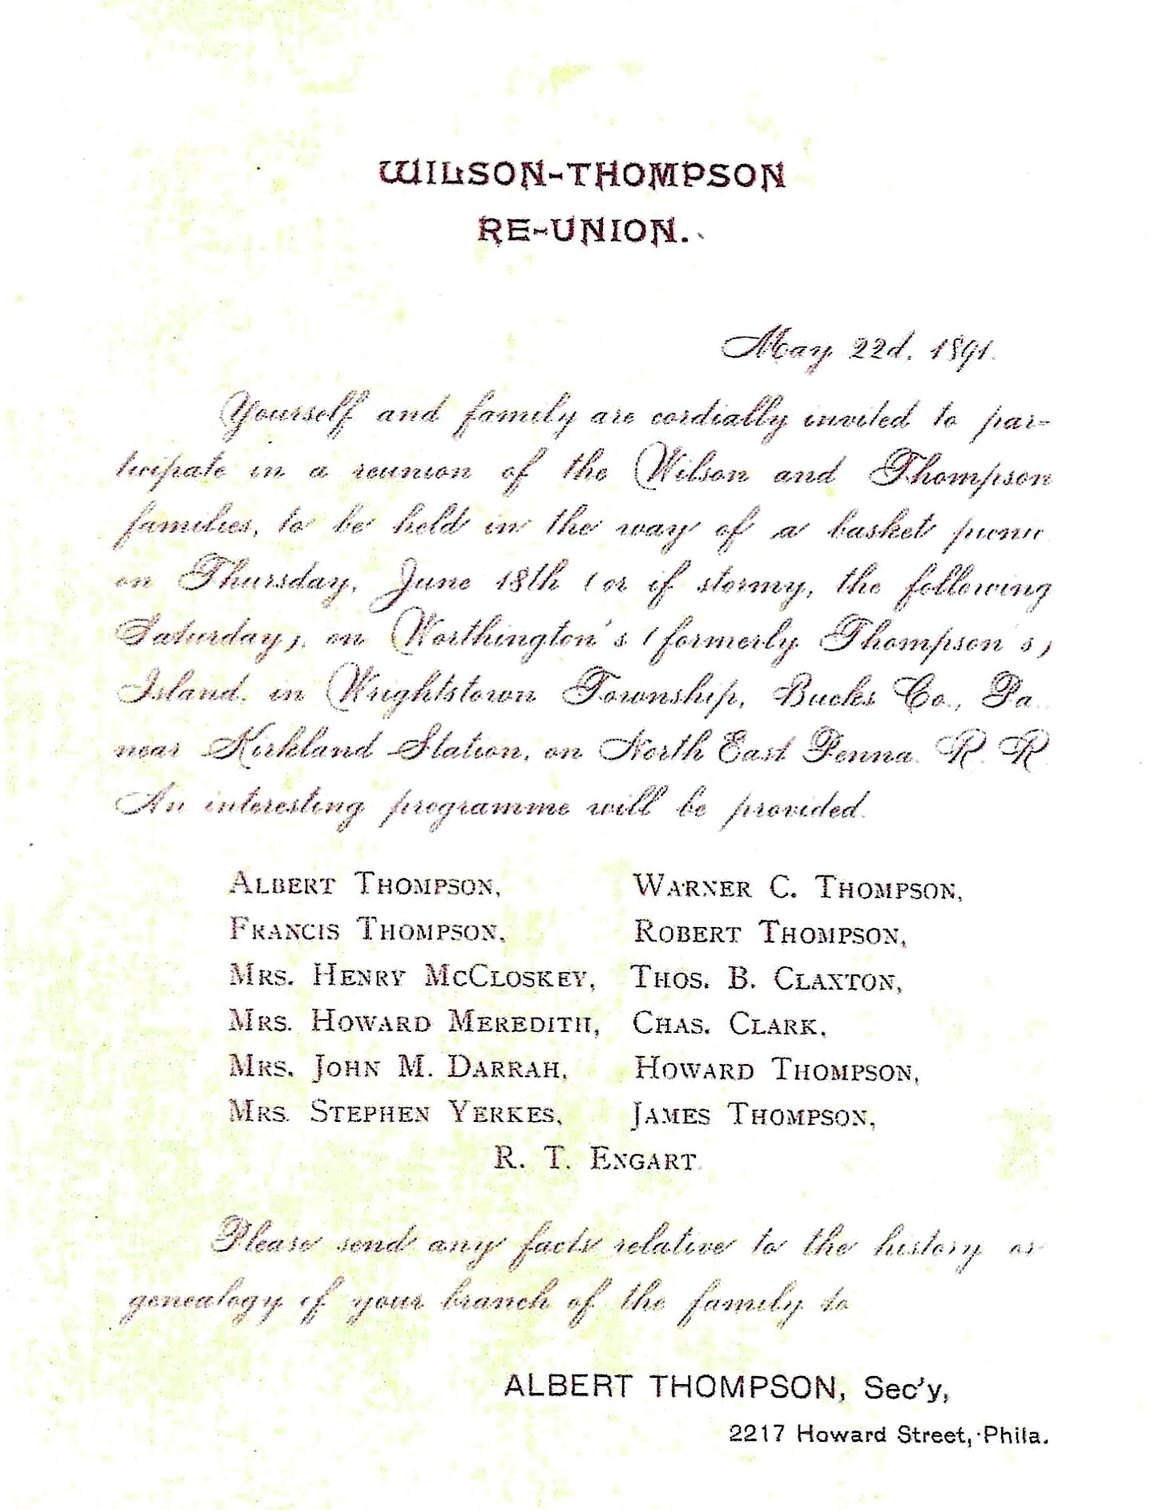 WILSON-THOMPSON
RE-UNION.
May 22d, 1891.
Yourself and family are cordially invited to par-
ticipate in a reunion of the Wilson and Thompson
families, to be held in the way of a basket picnic
on Thursday, June 18th (or if stormy, the following
Saturday), on Worthington's (formerly Thompson's)
Island, in Wrightstown Township, Bucks Co., Pa.
near Kirkland Station, on North East Penna. R. R.
An interesting programme will be provided.
ALBERT THOMPSON, WARNER C. THOMPSON,
FRANCIS THOMPSON, ROBERT THOMPSON,
MRS. HENRY MCCLOSKEY, THOS. B. CLAXTON,
MRS. HOWARD MEREDITH, CHAS. CLARK,
MRS. JOHN M. DARRAH, HOWARD THOMPSON,
MRS. STEPHEN YERKES, JAMES THOMPSON,
R. T. ENGART.
Please send any facts relative to the history or
genealogy of your branch of the family to
ALBERT THOMPSON, Sec'y,
2217 Howard Street, Phila.